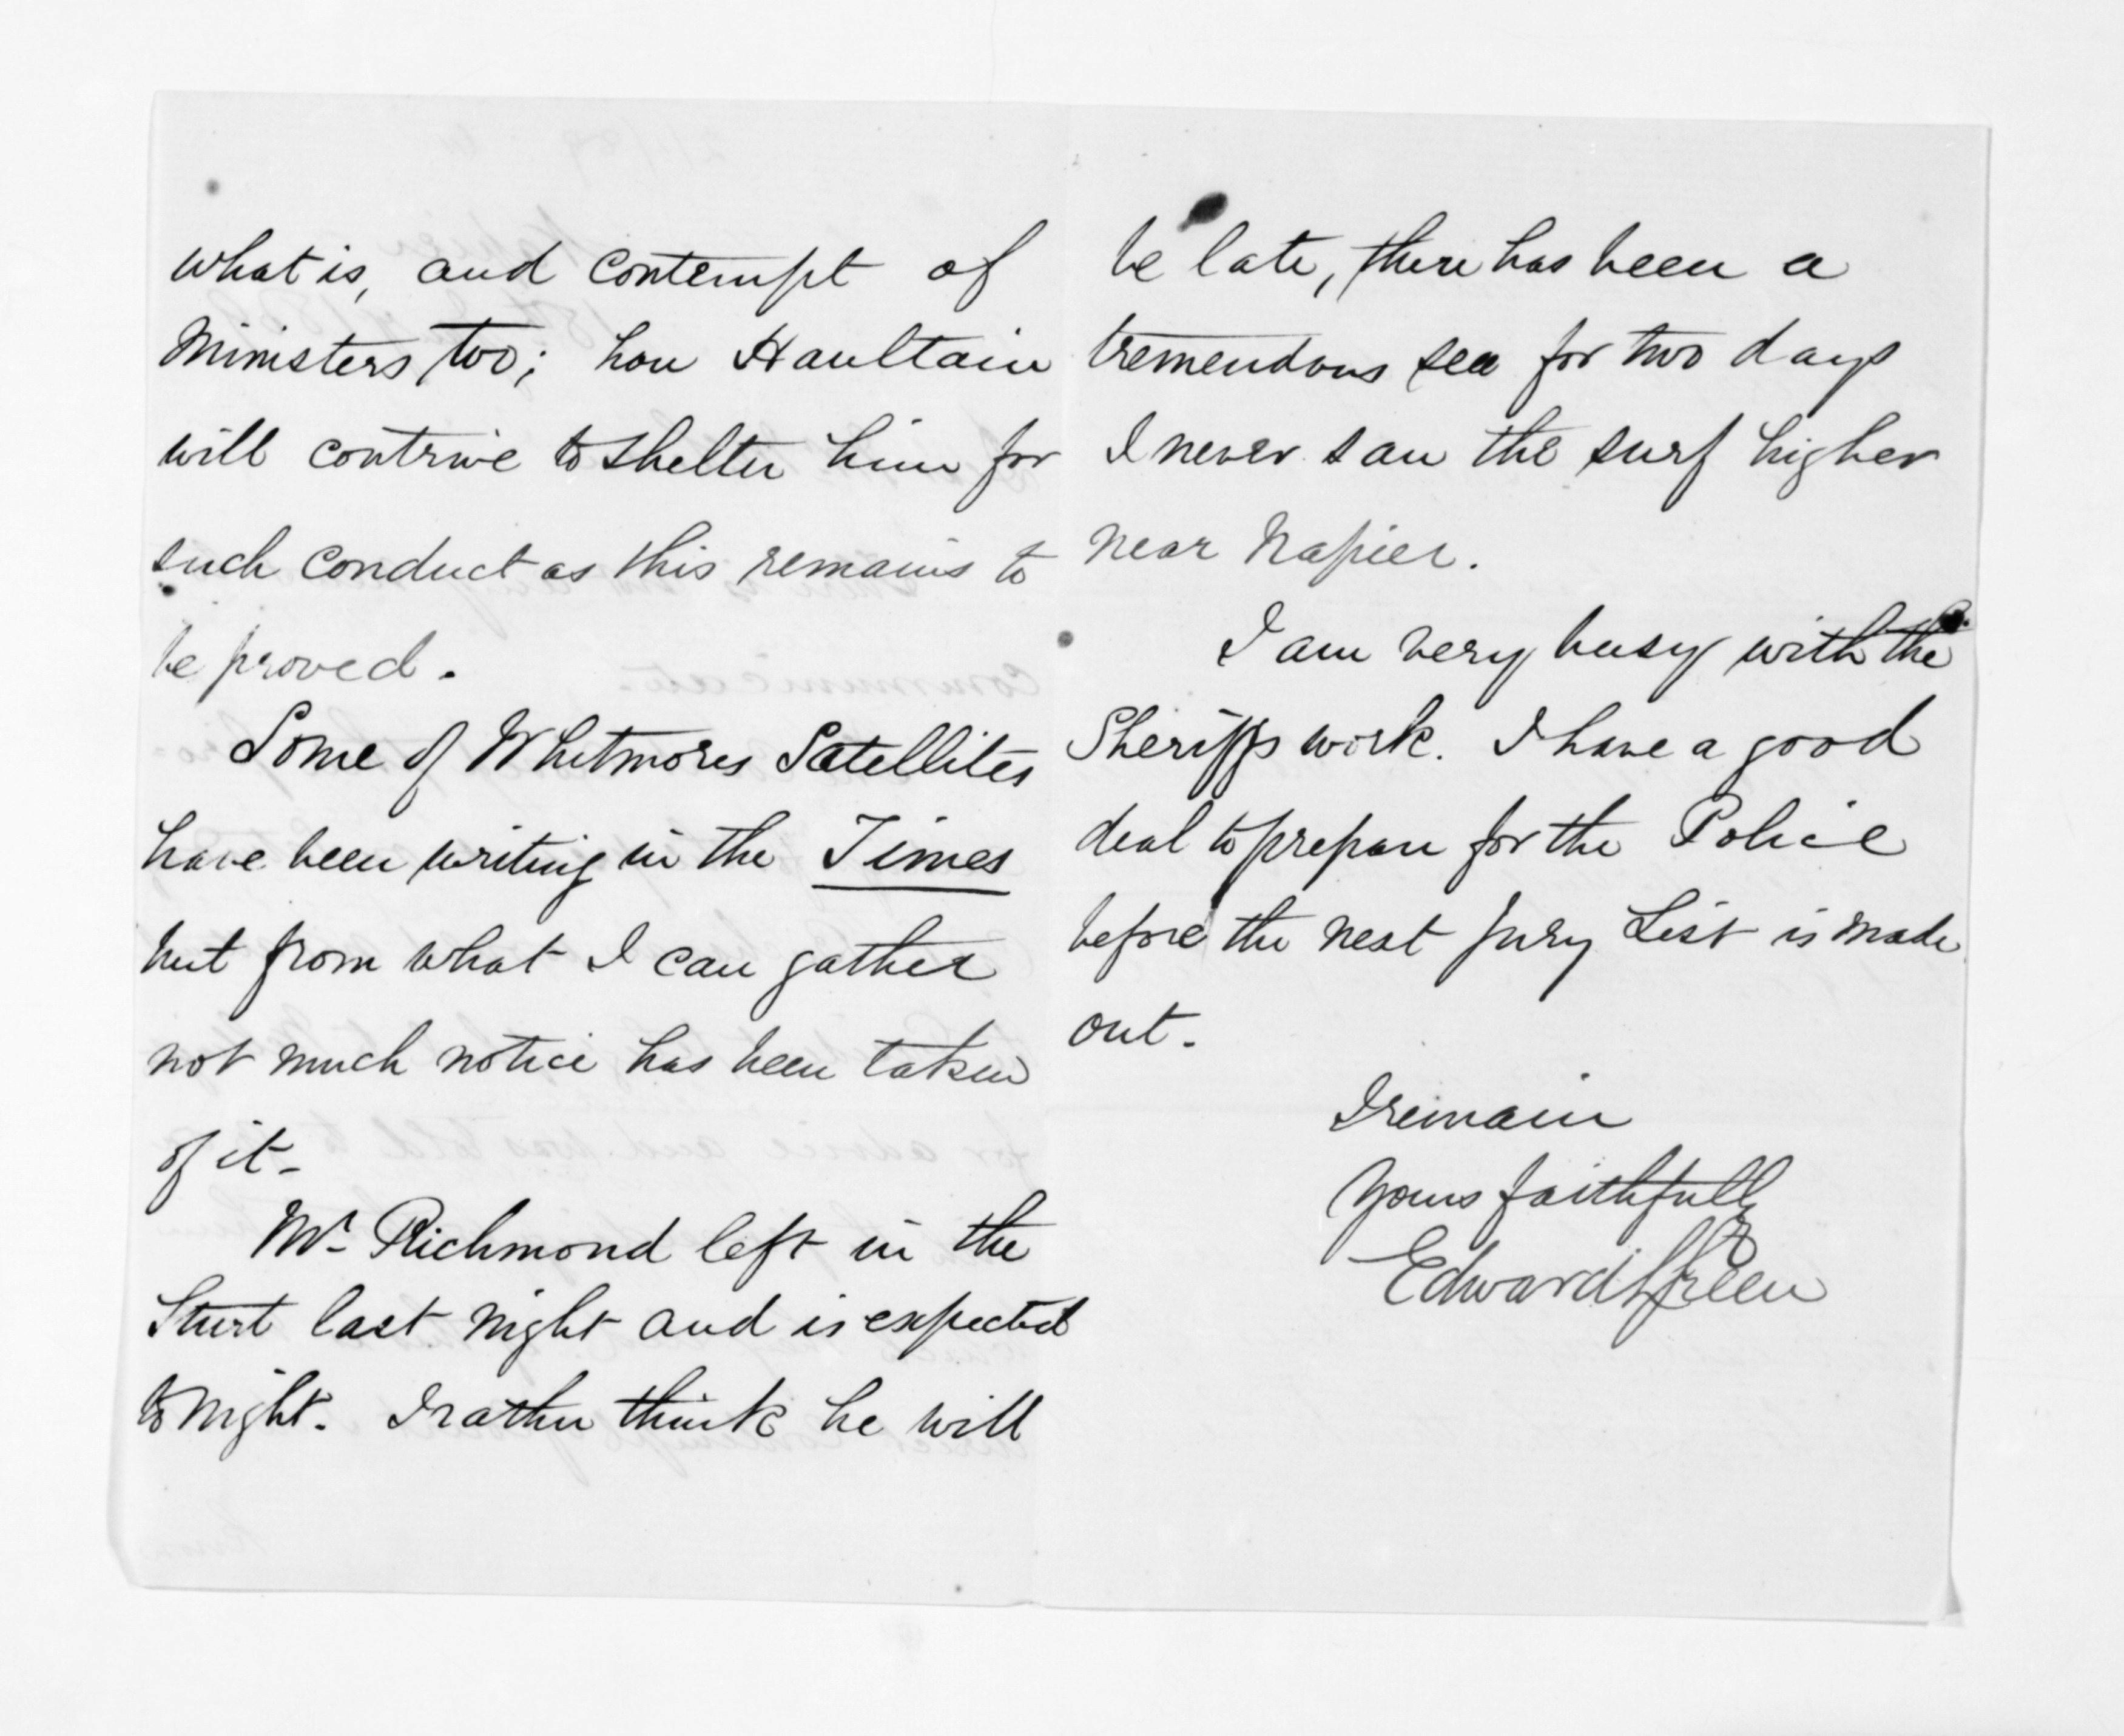 what is, and contempt of
Ministers too; how Haultain
will contrive to shelter him for
such conduct as this remains to
be proved.
Some of Whitmores Satellites
have been writing in the Times
but from what I can gather
not much notice has been taken
of it-
Mr. Richmond left in the
Sturt last night and is expected
to night. I rather think he will
be late, there has been a
tremendous sea for two days
I never saw the surf higher
near Napier.
I am very busy with the
Sheriffs work. I have a good
deal to prepare for the Police
before the next Jury List is made
out.
I remain
Yours faithfully
Edward Green